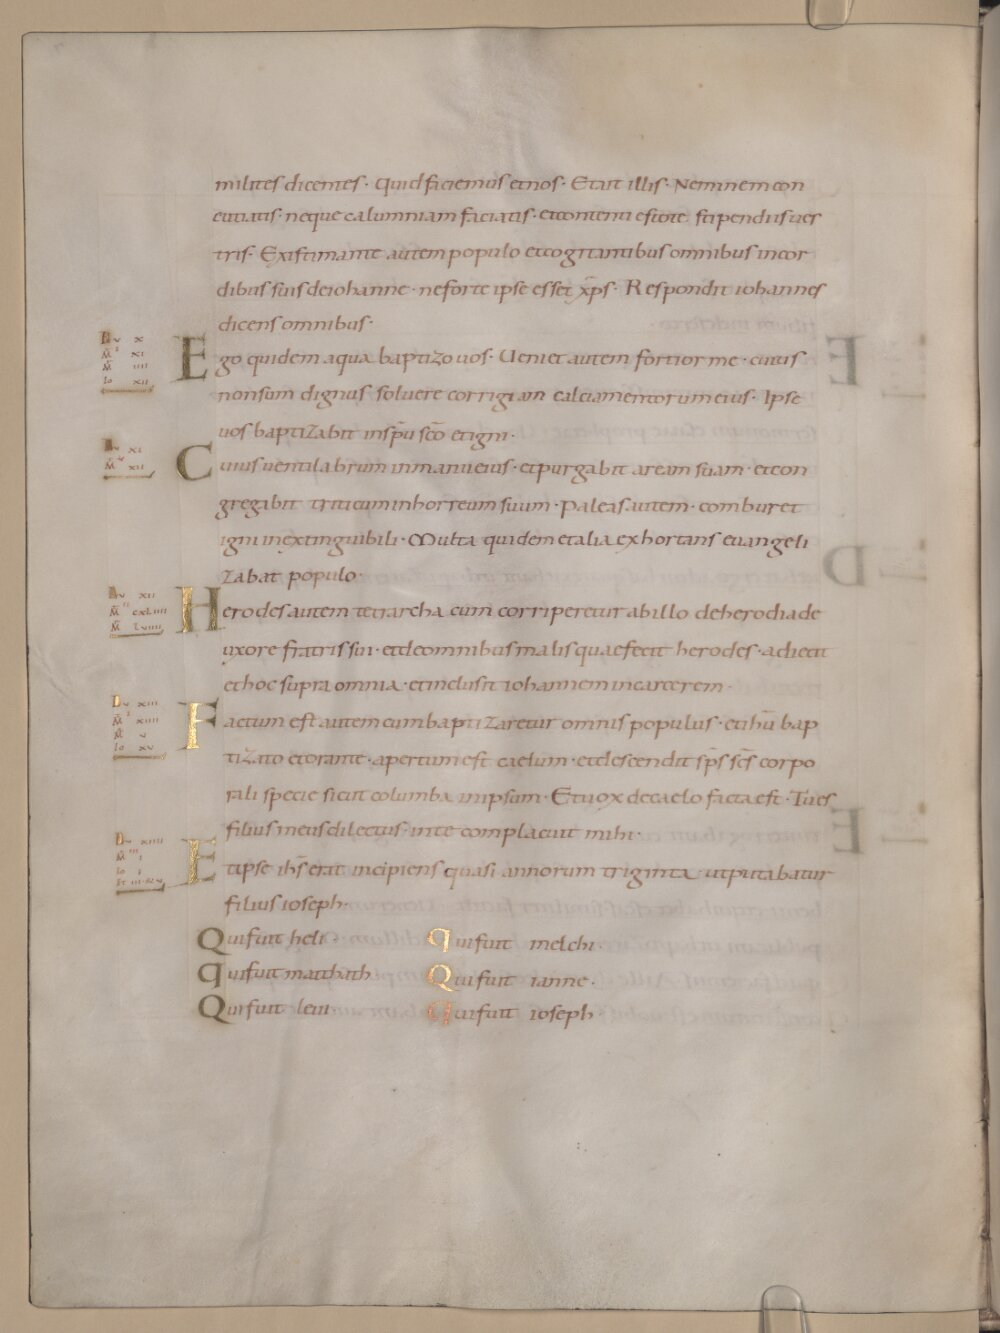 milites dicentes · Quid faciemus et nos · Et ait illis · Neminem con
cutiatis · neque calumniam faciatis · et contenti estote stipendiis ues
tris · Existimante autem populo et cogitantibus omnibus in cor
dibus suis de iohanne · ne forte ipse esset xp̄s · Respondit iohannes
dicens omnibus ·
Lu x
M̄ xi
M̄ iiii
Io xii
Ego quidem aqua baptizo uos · Ueniet autem fortior me · cuius
non sum dignus soluere corrigiam calciamentorum eius · Ipse
uos baptizabit in sp̄u sc̄o et igni ·
Lu xi
M̄ xii
Cuius uentilabrum in manu eius · et purgabit aream suam · et con
gregabit triticum in horreum suum · Paleas autem · comburet
igni inextinguibili · Multa quidem et alia exhortans euangeli
zabat populo ·
Lu xii
M̄ cxliiii
M̄ lviiii
Herodes autem tetrarcha cum corriperetur ab illo de herodiade
uxore fratris sui · et de omnibus malis quae fecit herodes · adiecit
et hoc supra omnia · et inclusit iohannem in carcerem ·
Lu xiii
M̄ xiiii
M̄ v
Io xv
Factum est autem cum baptizaretur omnis populus · et ih̄u bap
tizato et orante · apertum est caelum · et descendit sp̄s sc̄s corpo
rali specie sicut columba in ipsum · Et uox de caelo facta est · Tu es
filius meus dilectus · in te complacuit mihi ·
Lu xiiii
M̄ i
Io i
Et ipse ih̄s erat incipiens quasi annorum triginta · ut putabatur
filius ioseph ·
Qui fuit heli · Qui fuit melchi ·
Qui fuit matthath Qui fuit ianne ·
Qui fuit leui · Qui fuit ioseph